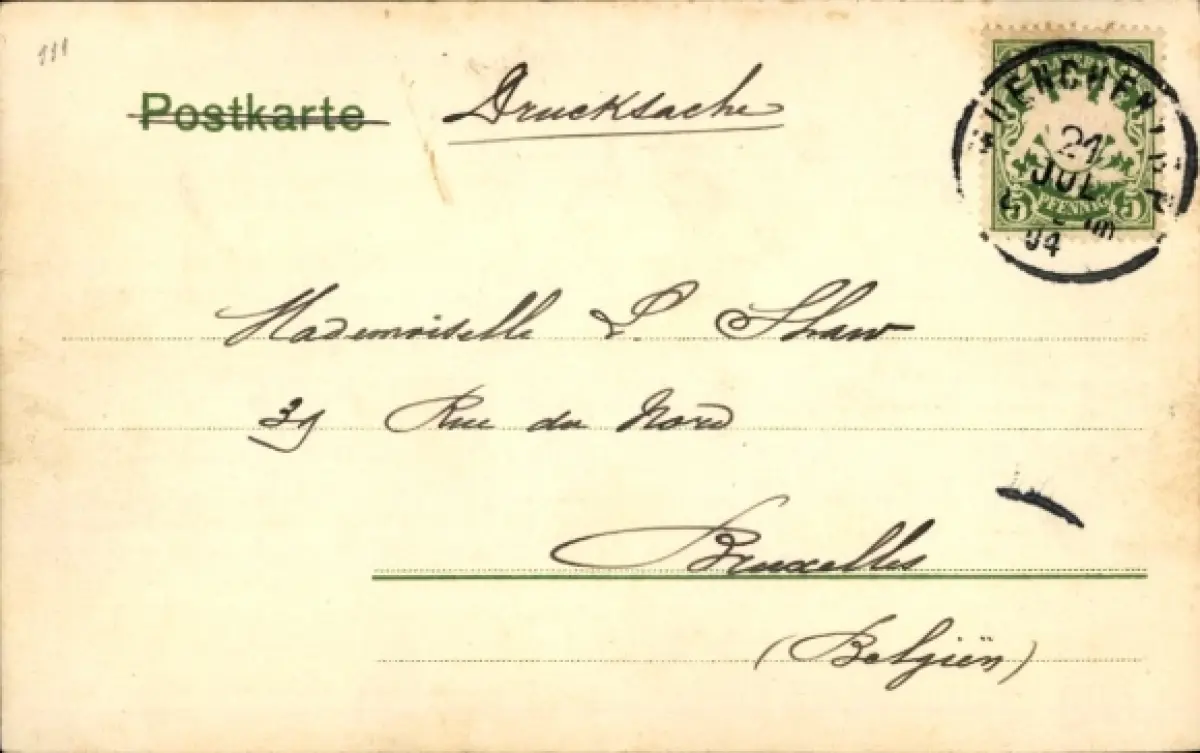 111
Postkarte Drucksache
MUENCHEN
21
JUL
04
5 PFENNIG 5
Mademoiselle L. Shaw
Rue du Nord
Bruxelles
(Belgiën)